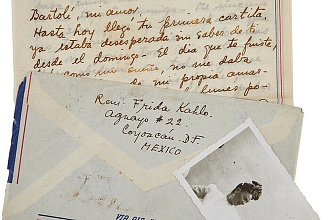 Bartoli, mi amor.
Hasta hoy llegó tu primera cartita,
ya estaba desesperada sin saber de ti
desde el domingo - El día que te fuiste,
sueño, no me daba
de mi propia amar-
lunes po-
Remi: Frida Kahlo.
Aguayo # 22.
Coyoacán. D.F.
MEXICO
VIA